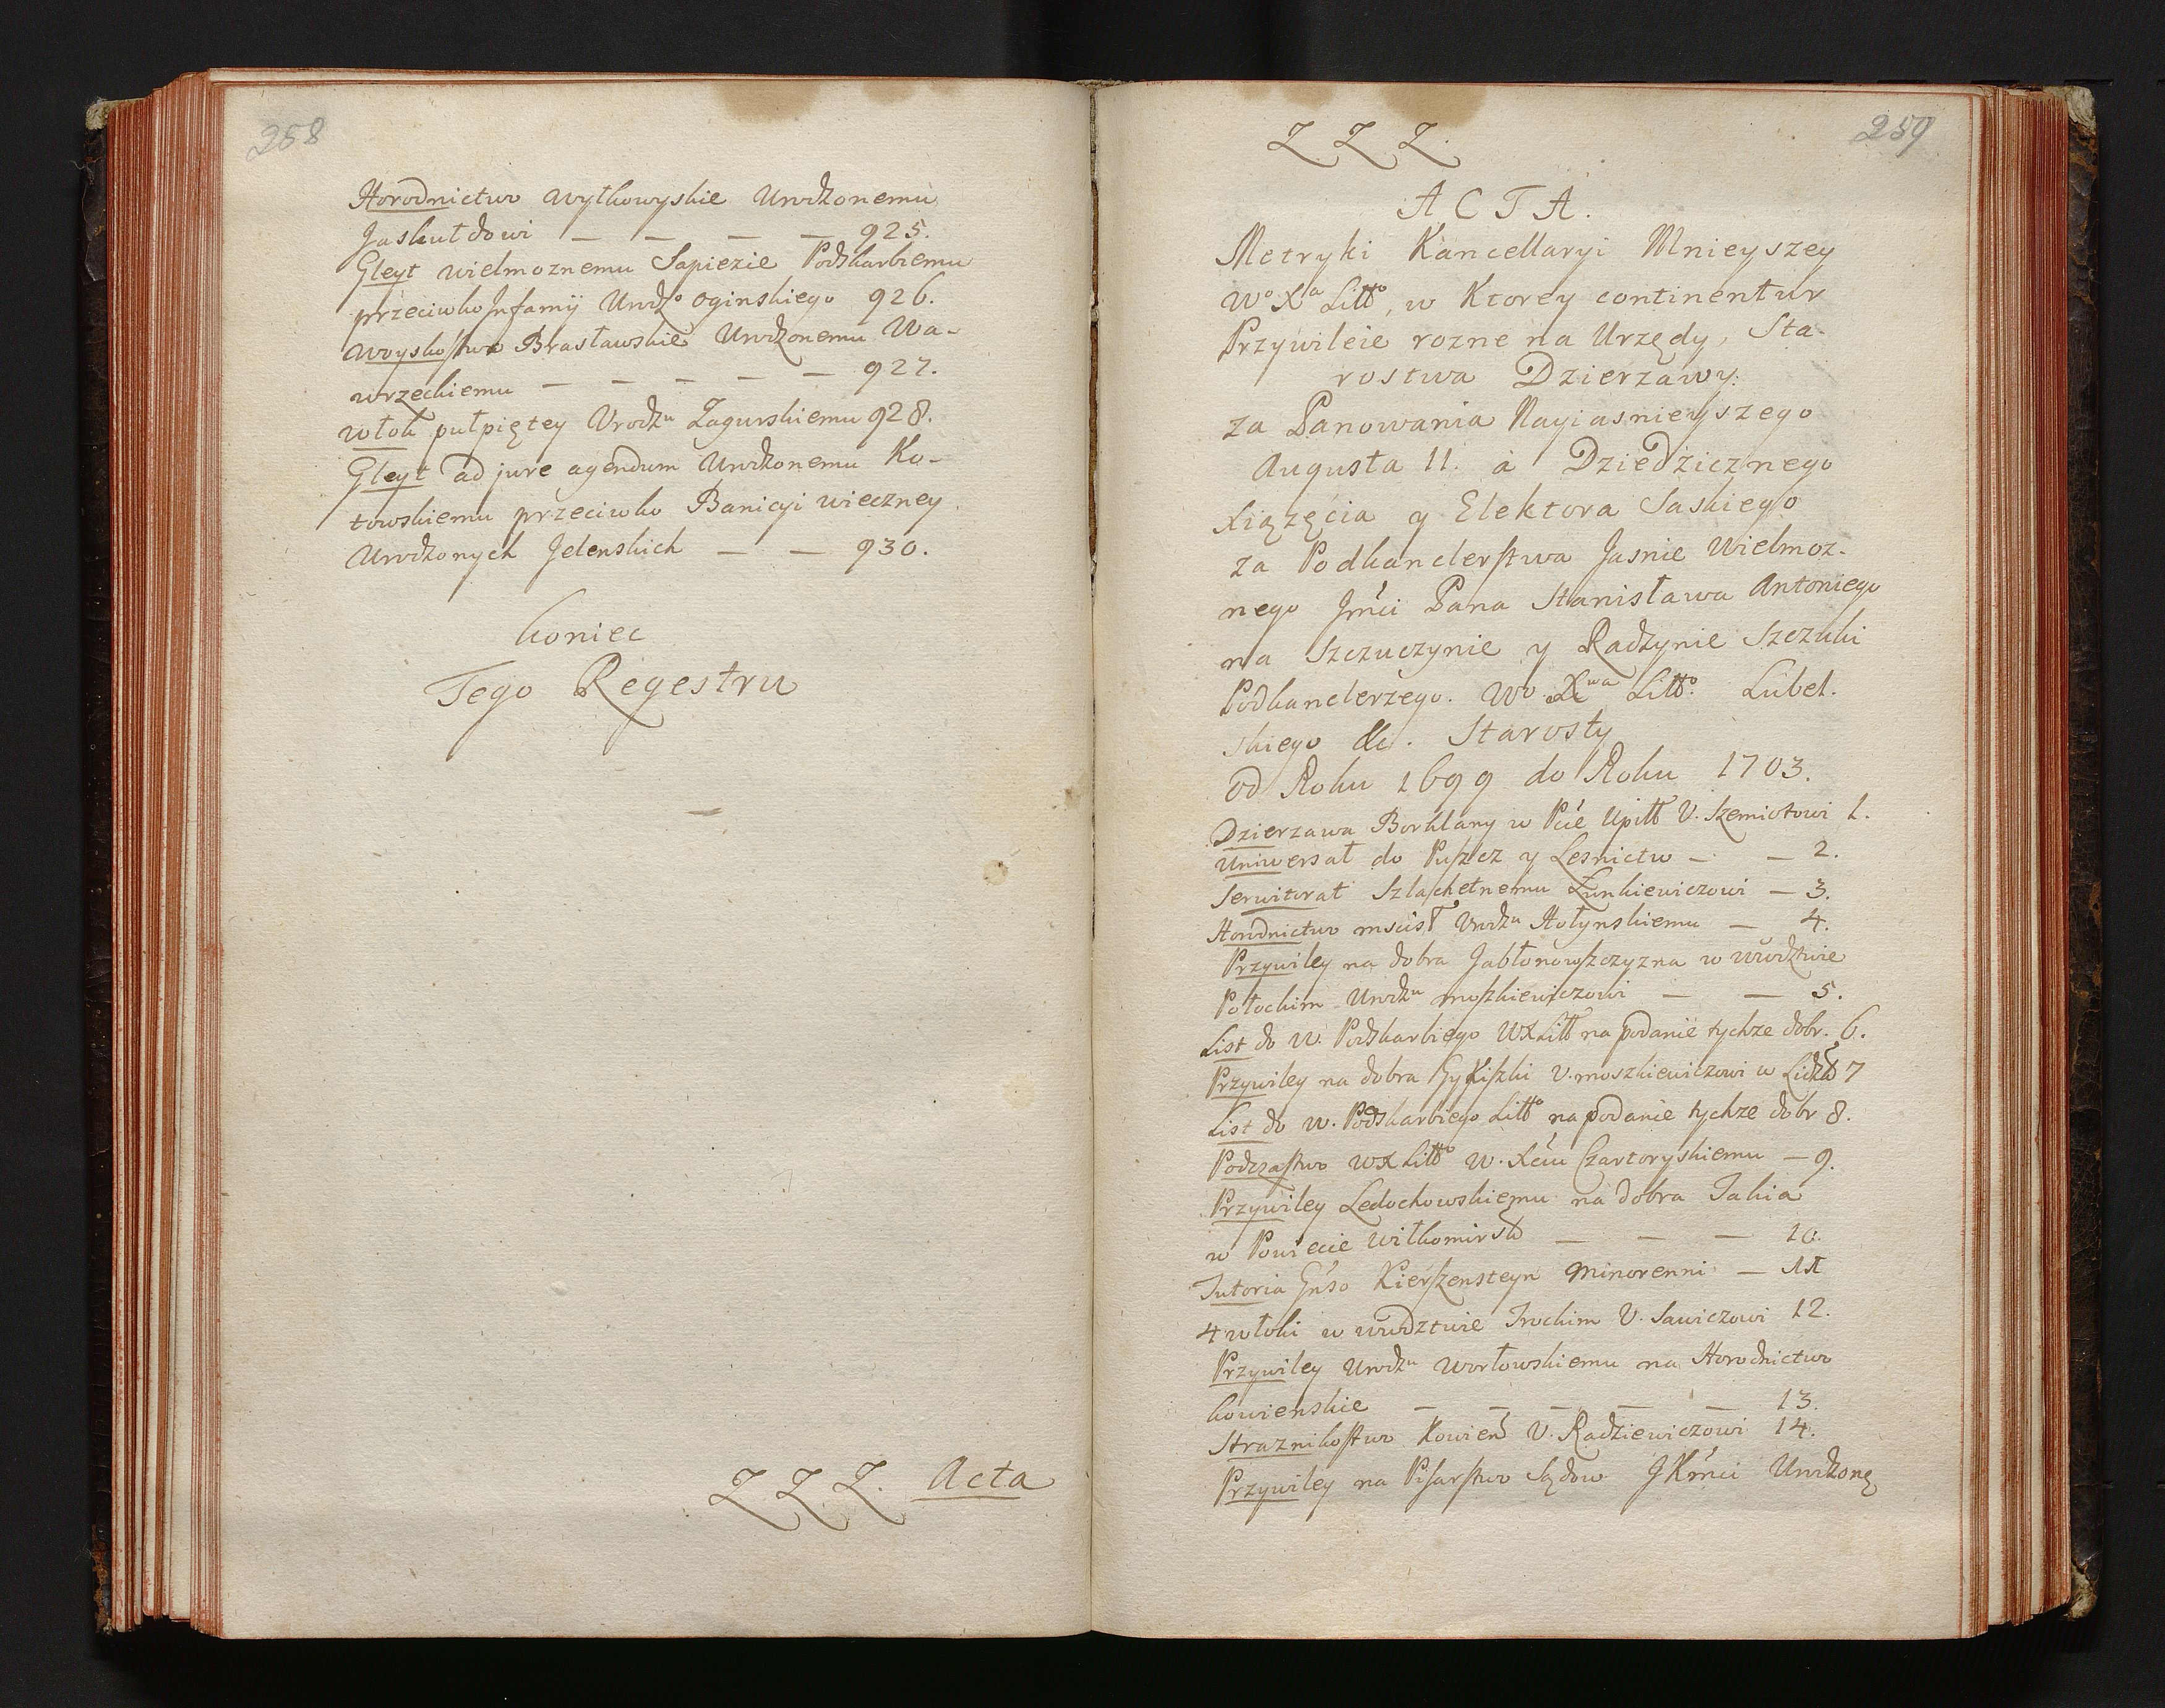 258
Horodnictwo Wyłkowyskie Urodzonemu
Jaskułdowi — — — — 925.
Gleyt wielmoznemu Sapiezie Podskarbiemu
przeciwko Infamij Urodzº Oginskiego 926.
Woyskostwo Brasławskie Urodzonemu Wa-
wrzeckiemu — — — — — 927.
włok pułpiętey Urodzᵘ Zagurskiemu 928.
Gleyt ad jure agendum Urodzonemu Ko-
towskiemu przeciwko Banicyi wieczney
Urodzonych Jelenskich — — 930.
Koniec
Tego Regestru
Z Z Z. Acta
259
Z Z Z.
ACTA.
Metryki Kancellaryi Mnieyszey
Wº Xª Littº, w Ktorey continentur
Przywileie rozne na Urzędy, Sta-
rostwa Dzierzawy:
za Panowania Nayiasnieyszego
Augusta II. à Dziedzicznego
Xiązęcia y Elektora Saskiego
za Podkanclerstwa Jasnie Wielmoz-
nego Jmći Pana Stanisława Antoniego
na Szczuczynie y Radzynie Szczuki
Podkanclerzego. Wº Xʷª Littº. Lubel-
skiego &c. Starosty
od Roku 1699 do Roku 1703.
Dzierzawa Borklany w Pcie Upitt V. Szemiotowi 1.
Uniwersał do Puszcz y Lesnictw — — 2.
Serwitorat Szlachetnemu Łunkiewiczowi — 3.
Horodnictwo mscisł Urodzᵘ Hołynskiemu — 4.
Przywiley na dobra Jabłonowszczyzna w wwdztwie
Połockim Urodzᵘ moszkiewiczowi — — 5.
List do W. Podskarbiego WXLitt na podanie tychze dobr. 6.
Przywiley na dobra V. moszkiewiczowi w Lidzk 7
List do W. Podskarbiego Littº na podanie tychze dobr 8.
Podczastwo WXLittº W. Xćiu Czartoryskiemu — 9.
Przywiley Ledochowskiemu na dobra Jakia
w Powiecie Wiłkomirsk — — — 10.
Tutoria Gnso Kierszensteyn Minorenni — 11
4 włoki w wwdztwie Trockim V. Sawiczowi 12.
Przywiley Urodzᵘ Worłowskiemu na Horodnictwo
Kowienskie — — — — — 13.
Straznikostwo Kowien V. Radziewiczowi 14.
Przywiley na Pisarstwo Sądow JKmći Urodzonę